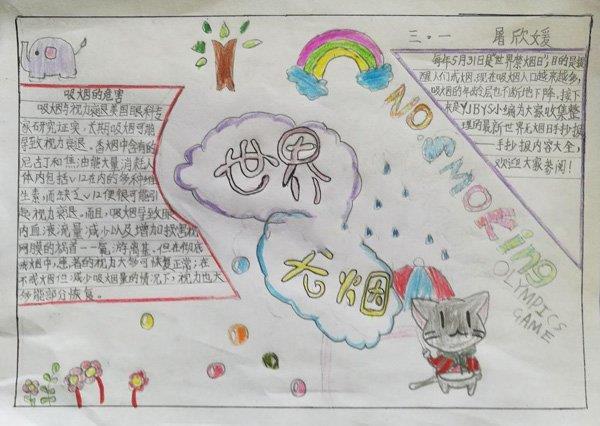 三.一 屠欣媛
吸烟的危害
吸烟与视力衰退美国眼科专
家研究证实,长期吸烟可能
导致视力衰退。香烟中含有的
尼古丁和焦油能大量消耗人
体内包括V12在内的多种维
生素,而缺乏V12便很可能引
起视力衰退。而且,吸烟导致眼
内血液流量减少以及增加损害视
网膜的祸首一一氧,游离基。但在彻底
戒烟中,患者的视力大多可恢复正常;在
不戒烟但减少吸烟量的情况下,视力也大
体能部分恢复。
世界
无烟
NO.SMOKing
OLYMPICS
GAME
每年5月31日是"世界禁烟日",目的是提
醒人们戒烟。现在吸烟人口越来越多,
吸烟的年龄层也不断的下降,接下
来是YJBYS小编为大家收集整
理的最新世界无烟日手抄报
——手抄报内容大全,
欢迎大家参阅!